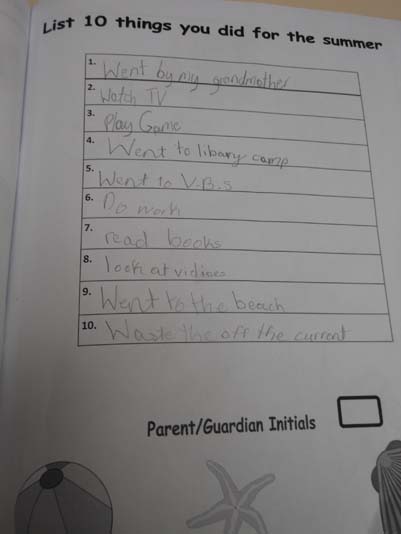 List 10 things you did for the summer
1. Went by my grandmother
2. Watch TV
3. Play Game
4. Went to libary camp
5. Went to V.B.S
6. Do work
7. read books
8. look at vidioes
9. Went to the beach
10. Waste the off the current
Parent/Guardian Initials